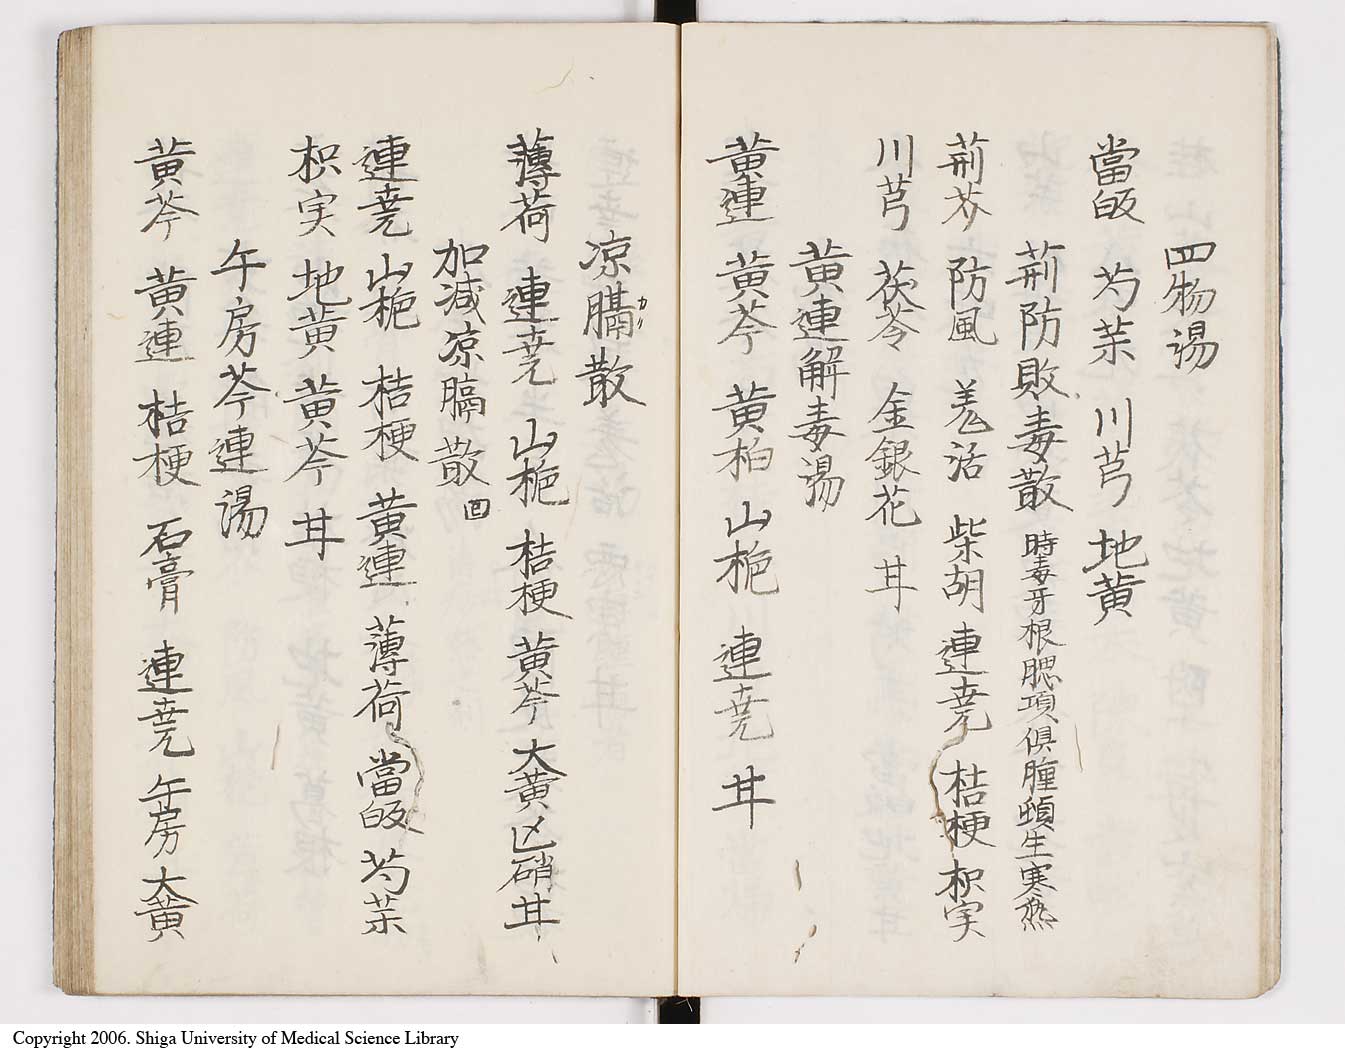 四物湯
當皈 芍茱 川芎 地黄
荊防敗毒散 時毒牙根腮項俱腫頭生寒熱
荊芥 防風 羌活 柴胡 連尭 桔梗 枳実
川芎 茯苓 金銀花 甘
黄連解毒湯
黄連 黄芩 黄柏 山梔 連尭 甘
凉膈散
カク
薄荷 連尭 山梔 桔梗 黄芩 大黄 芒硝 甘
加減凉膈散 回
連尭 山梔 桔梗 黄連 薄荷 當皈 芍茱
枳実 地黄 黄芩 甘
午房芩連湯
黄芩 黄連 桔梗 石膏 連尭 午房 大黄
Copyright 2006. Shiga University of Medical Science Library